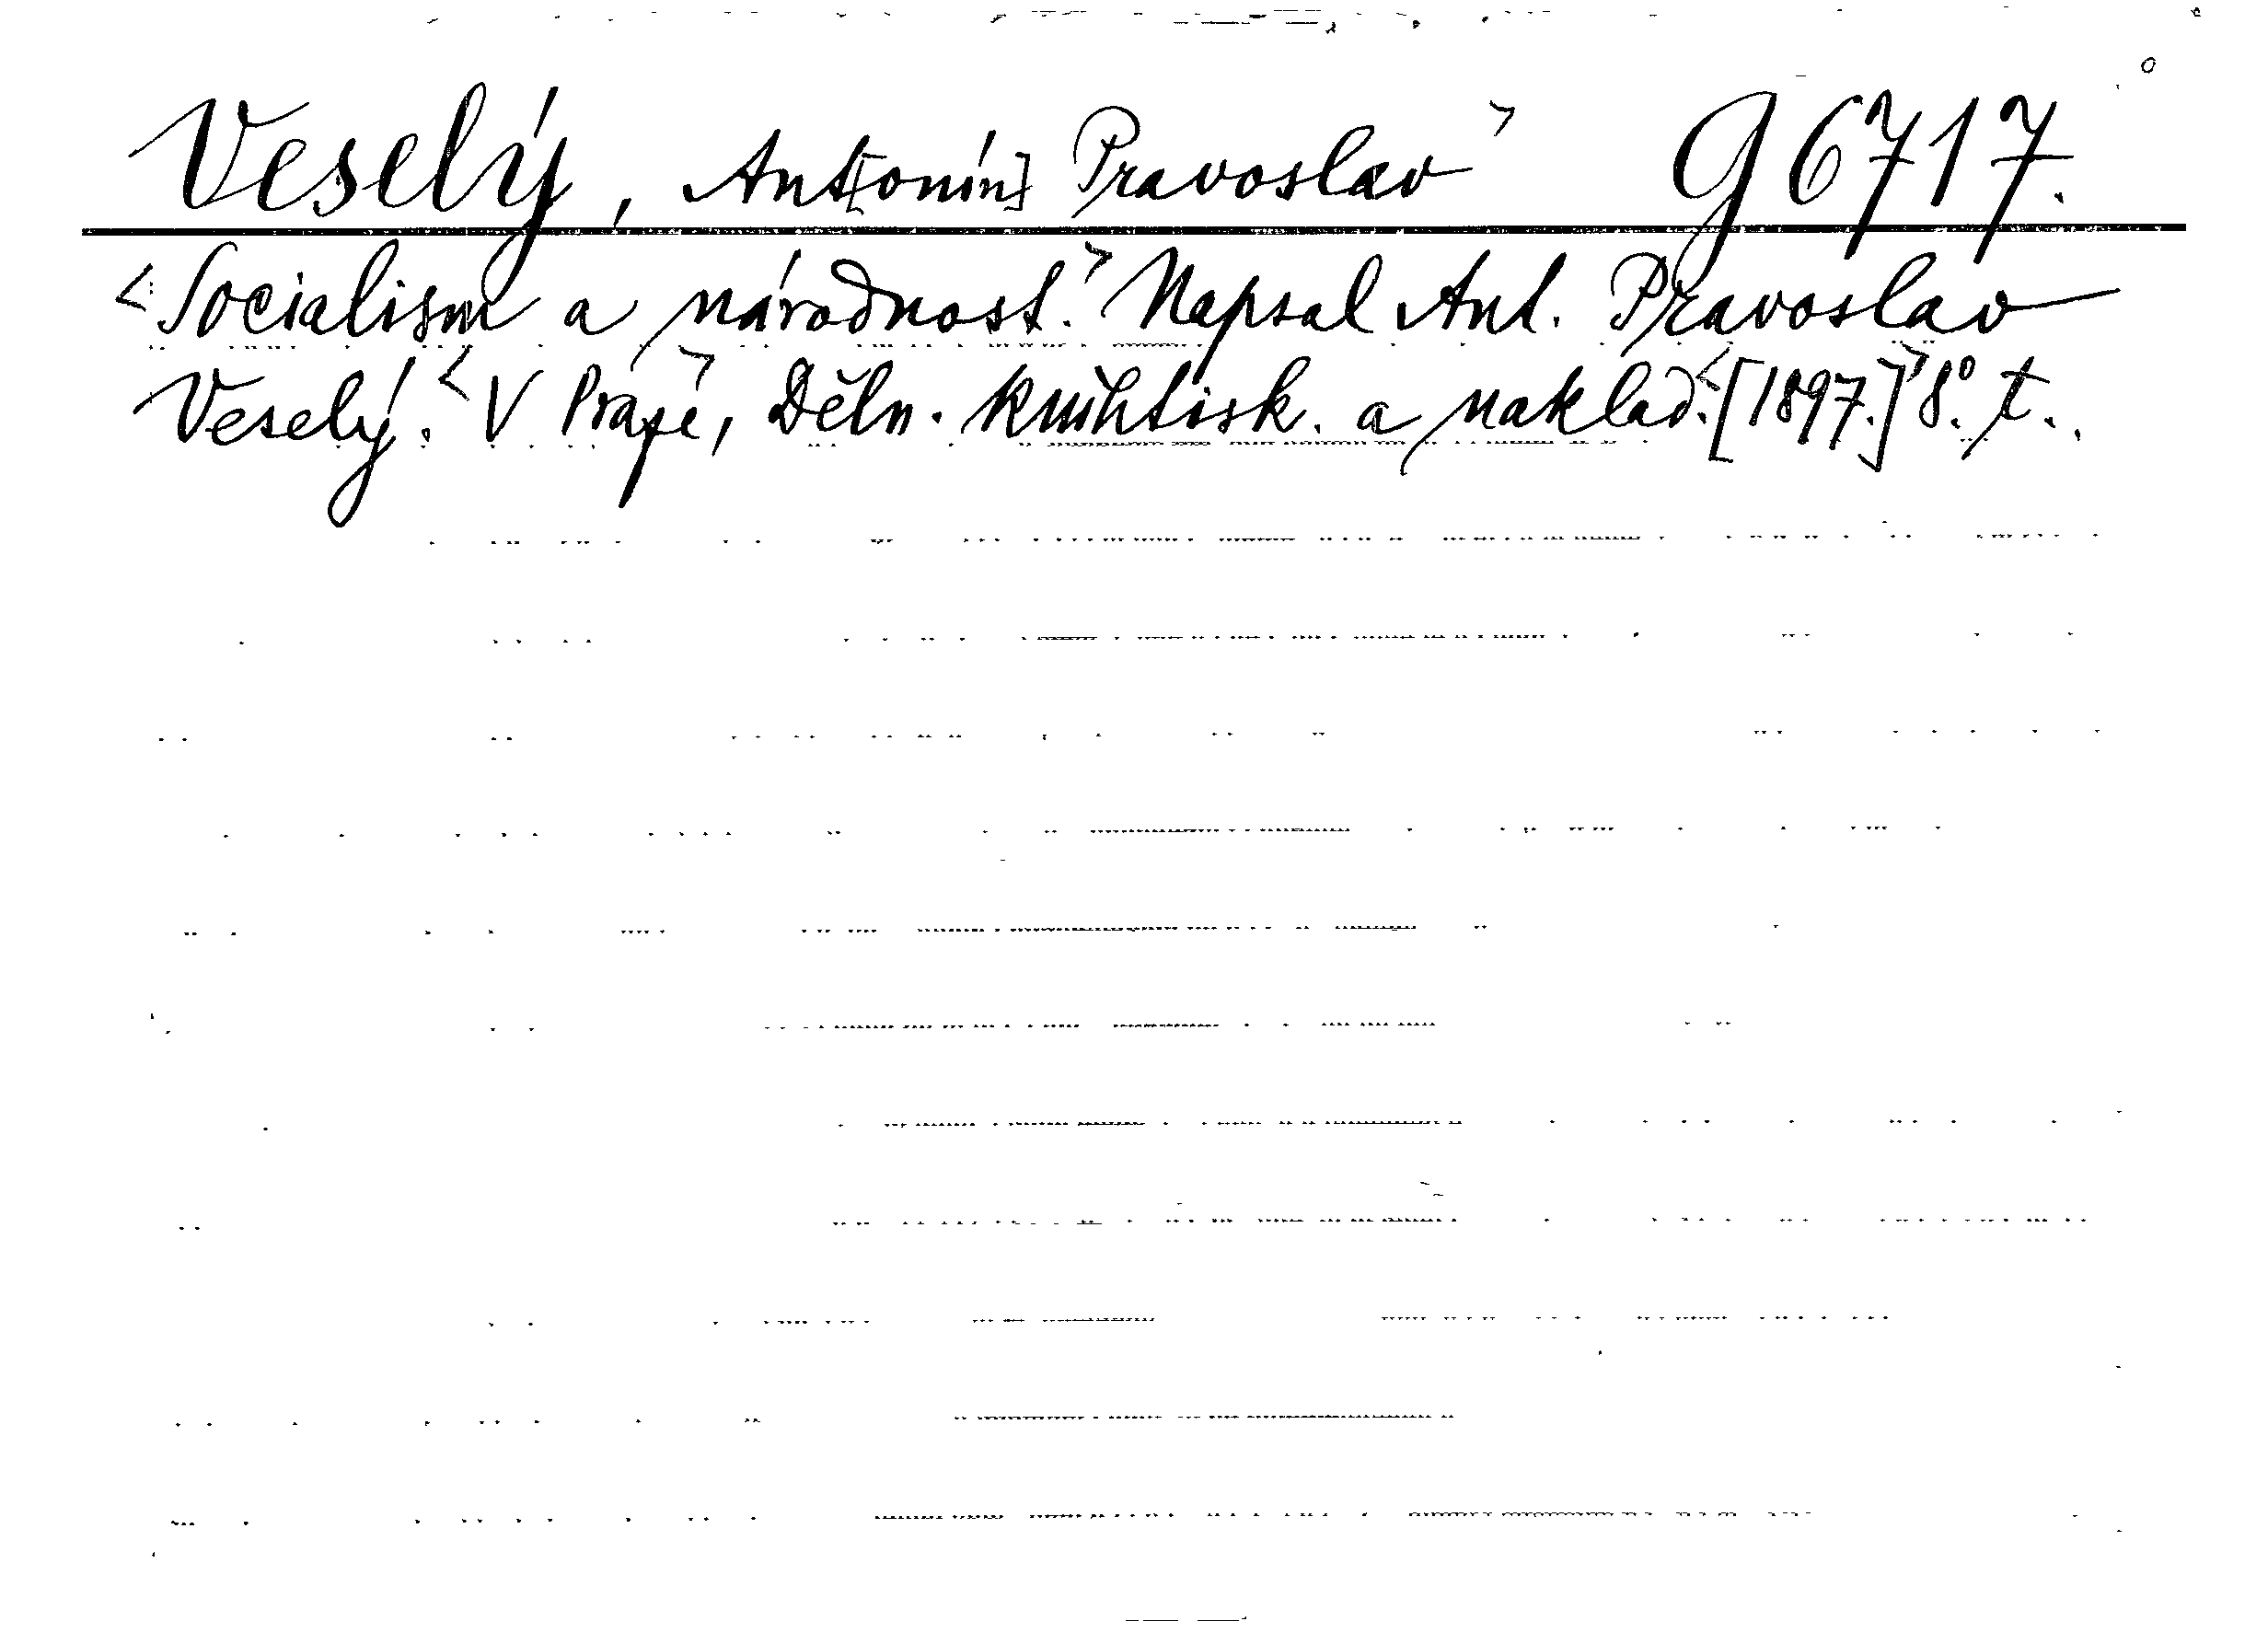 Veselý, Ant[onín] Pravoslav> g 6717.
<Socialism a národnost.> Napsal Ant. Pravoslav
Veselý. <V Praze>, Děln. knihtisk. a naklad. <[1897.]> 8°. t.